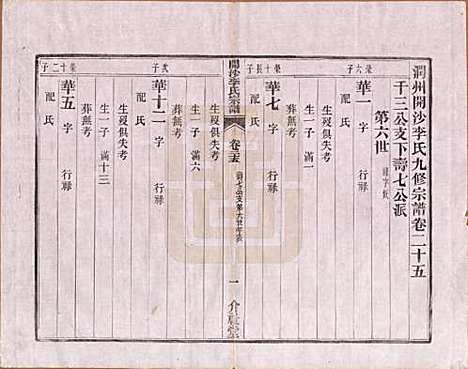 潤州開沙李氏九修宗譜卷二十五
千三公支下壽七公派
第六世
榮六子
華一 字 行祿
配 氏
生歿俱失考
葬無考
榮十長子
華七 字 行祿
配 氏
生歿俱失考
葬無考
開沙李氏宗譜
卷二十五
一
次子
華十二 字 行祿
配 氏
生歿俱失考
生一子 滿六
葬無考
榮十二子
華五 字 行祿
配 氏
生歿俱失考
生一子 滿十三
葬無考